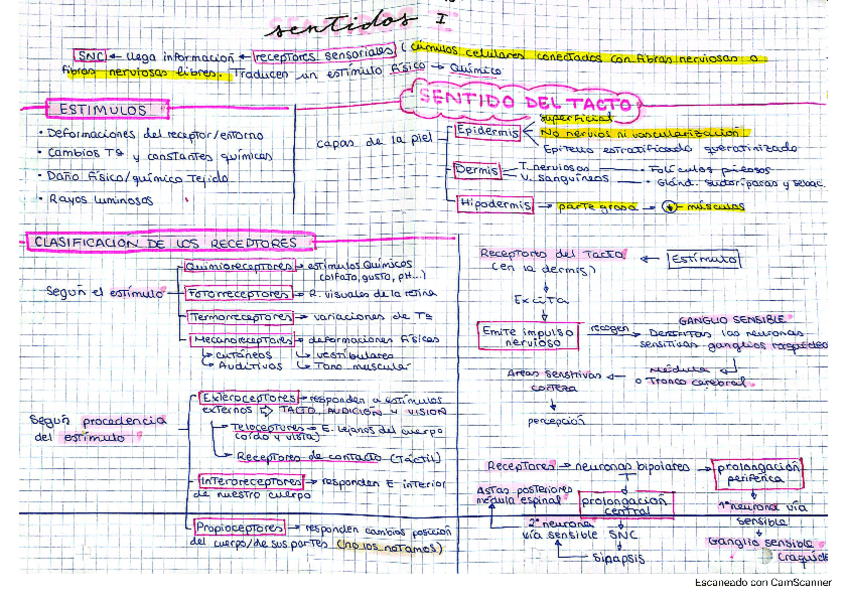 sentidos I
SNC ← llega información ← receptores sensoriales (cúmulos celulares conectados con fibras nerviosas o
fibras nerviosas libres. Traducen un estímulo físico → Químico
ESTIMULOS
• Deformaciones del receptor/entorno
• Cambios Tª y constantes químicas
• Daño físico/químico Tejido
• Rayos luminosos
SENTIDO DEL TACTO
capas de la piel
Epidermis
superficial
No nervios ni vascularización
Epitelio estratificado queratinizado
Dermis
T. nerviosos
V. sanguíneos
• Folículos pilosos
• Gland. sudoríparas y sebac.
Hipodermis → parte grasa → músculos
CLASIFICACION DE LOS RECEPTORES
Según el estímulo
Quimioreceptores → estímulos Químicos
(olfato, gusto, pH...)
Fotorreceptores → R. visuales de la retina
Termoreceptores → variaciones de Tª
Mecanoreceptores → deformaciones físicas
↳ cutáneos ↳ vestibulares
↳ Auditivos ↳ Tono muscular
Según procedencia
del estímulo
Exteroceptores → responden a estímulos
externos ⇨ TACTO, AUDICIÓN Y VISION
Teloceptores → E. lejanos del cuerpo
(oído y vista)
Receptores de contacto (Táctil)
Interoreceptores → responden E. interior
de nuestro cuerpo
Propioceptores → responden cambios posición
del cuerpo/de sus partes (no los notamos)
Receptores del Tacto ← Estímulo
(en la dermis)
Excita
Emite impulso
nervioso
recogen
GANGLIO SENSIBLE
Dendritas las neuronas
sensitivas ganglios raquídeo
Médula
o Tronco cerebral
Areas sensitivas
corteza
percepción
Receptores → neuronas bipolares → prolongación
periférica
Astas posteriores
médula espinal
prolongación
central
1ª neurona vía
sensible
2ª neurona
vía sensible SNC
Ganglio sensible
(raquíde
Sinapsis
Escaneado con CamScanner